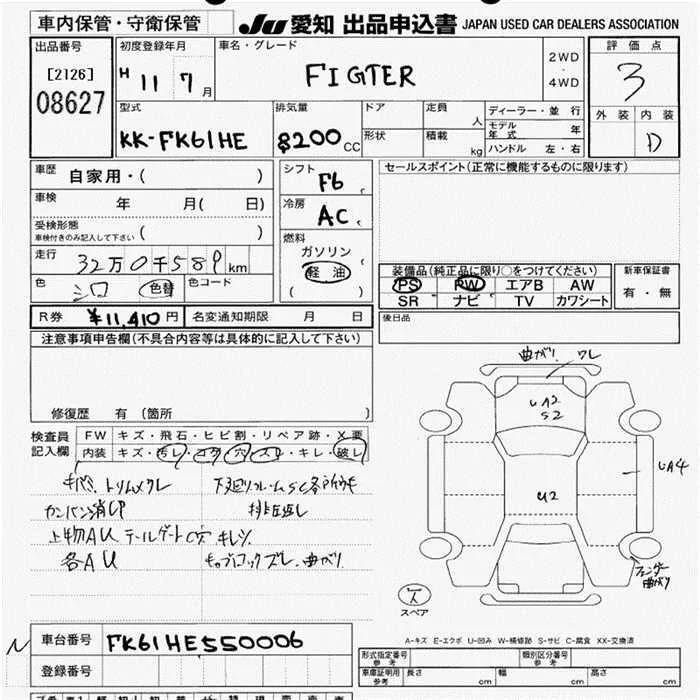 車内保管・守衛保管 JU 愛知 出品申込書 JAPAN USED CAR DEALERS ASSOCIATION
出品番号
[2126]
08627
初度登録年月
H 11 7 月
車名・グレード
FIGTER
2WD
・
4WD
評価点
3
外装 内装
D
型式
KK-FK61HE
排気量
8200 CC
ドア
形状
定員
人
積載
kg
ディーラー・並行
モデル年式 年
ハンドル 左・右
車歴
自家用・( )
車検
年 月( 日)
受検形態
車検付きのみ記入して下さい ( )
走行
32万0千589 km
色
シロ 色替
色コード
シフト
F6
冷房
AC
燃料
ガソリン
軽油
( )
セールスポイント(正常に機能するものに限ります)
装備品(純正品に限り○をつけてください)
PS PW エアB AW
SR ナビ TV カワシート
新車保証書
有・無
後日品
R券 ¥11,410円 名変通知期限 月 日
注意事項申告欄(不具合内容等は具体的に記入して下さい)
修復歴 有 (箇所 )
検査員
記入欄
FW キズ・飛石・ヒビ割・リペア跡・X要
内装 キズ・汚レ・コゲ・穴・スレ・キレ・破レ
カンバン消しP
上物AU テールゲートC穴 キレツ
各AU
曲がり
ワレ
UA2
S2
U2
UA4
フェンダー
曲がり
スペア
A-キズ E-エクボ U-凹み W-補修跡 S-サビ C-腐食 XX-交換済
車台番号 FK61HE550006
登録番号
型式指定番号
参考
類別区分番号
参考
車庫証明用
参考
長さ cm 幅 cm 高さ cm